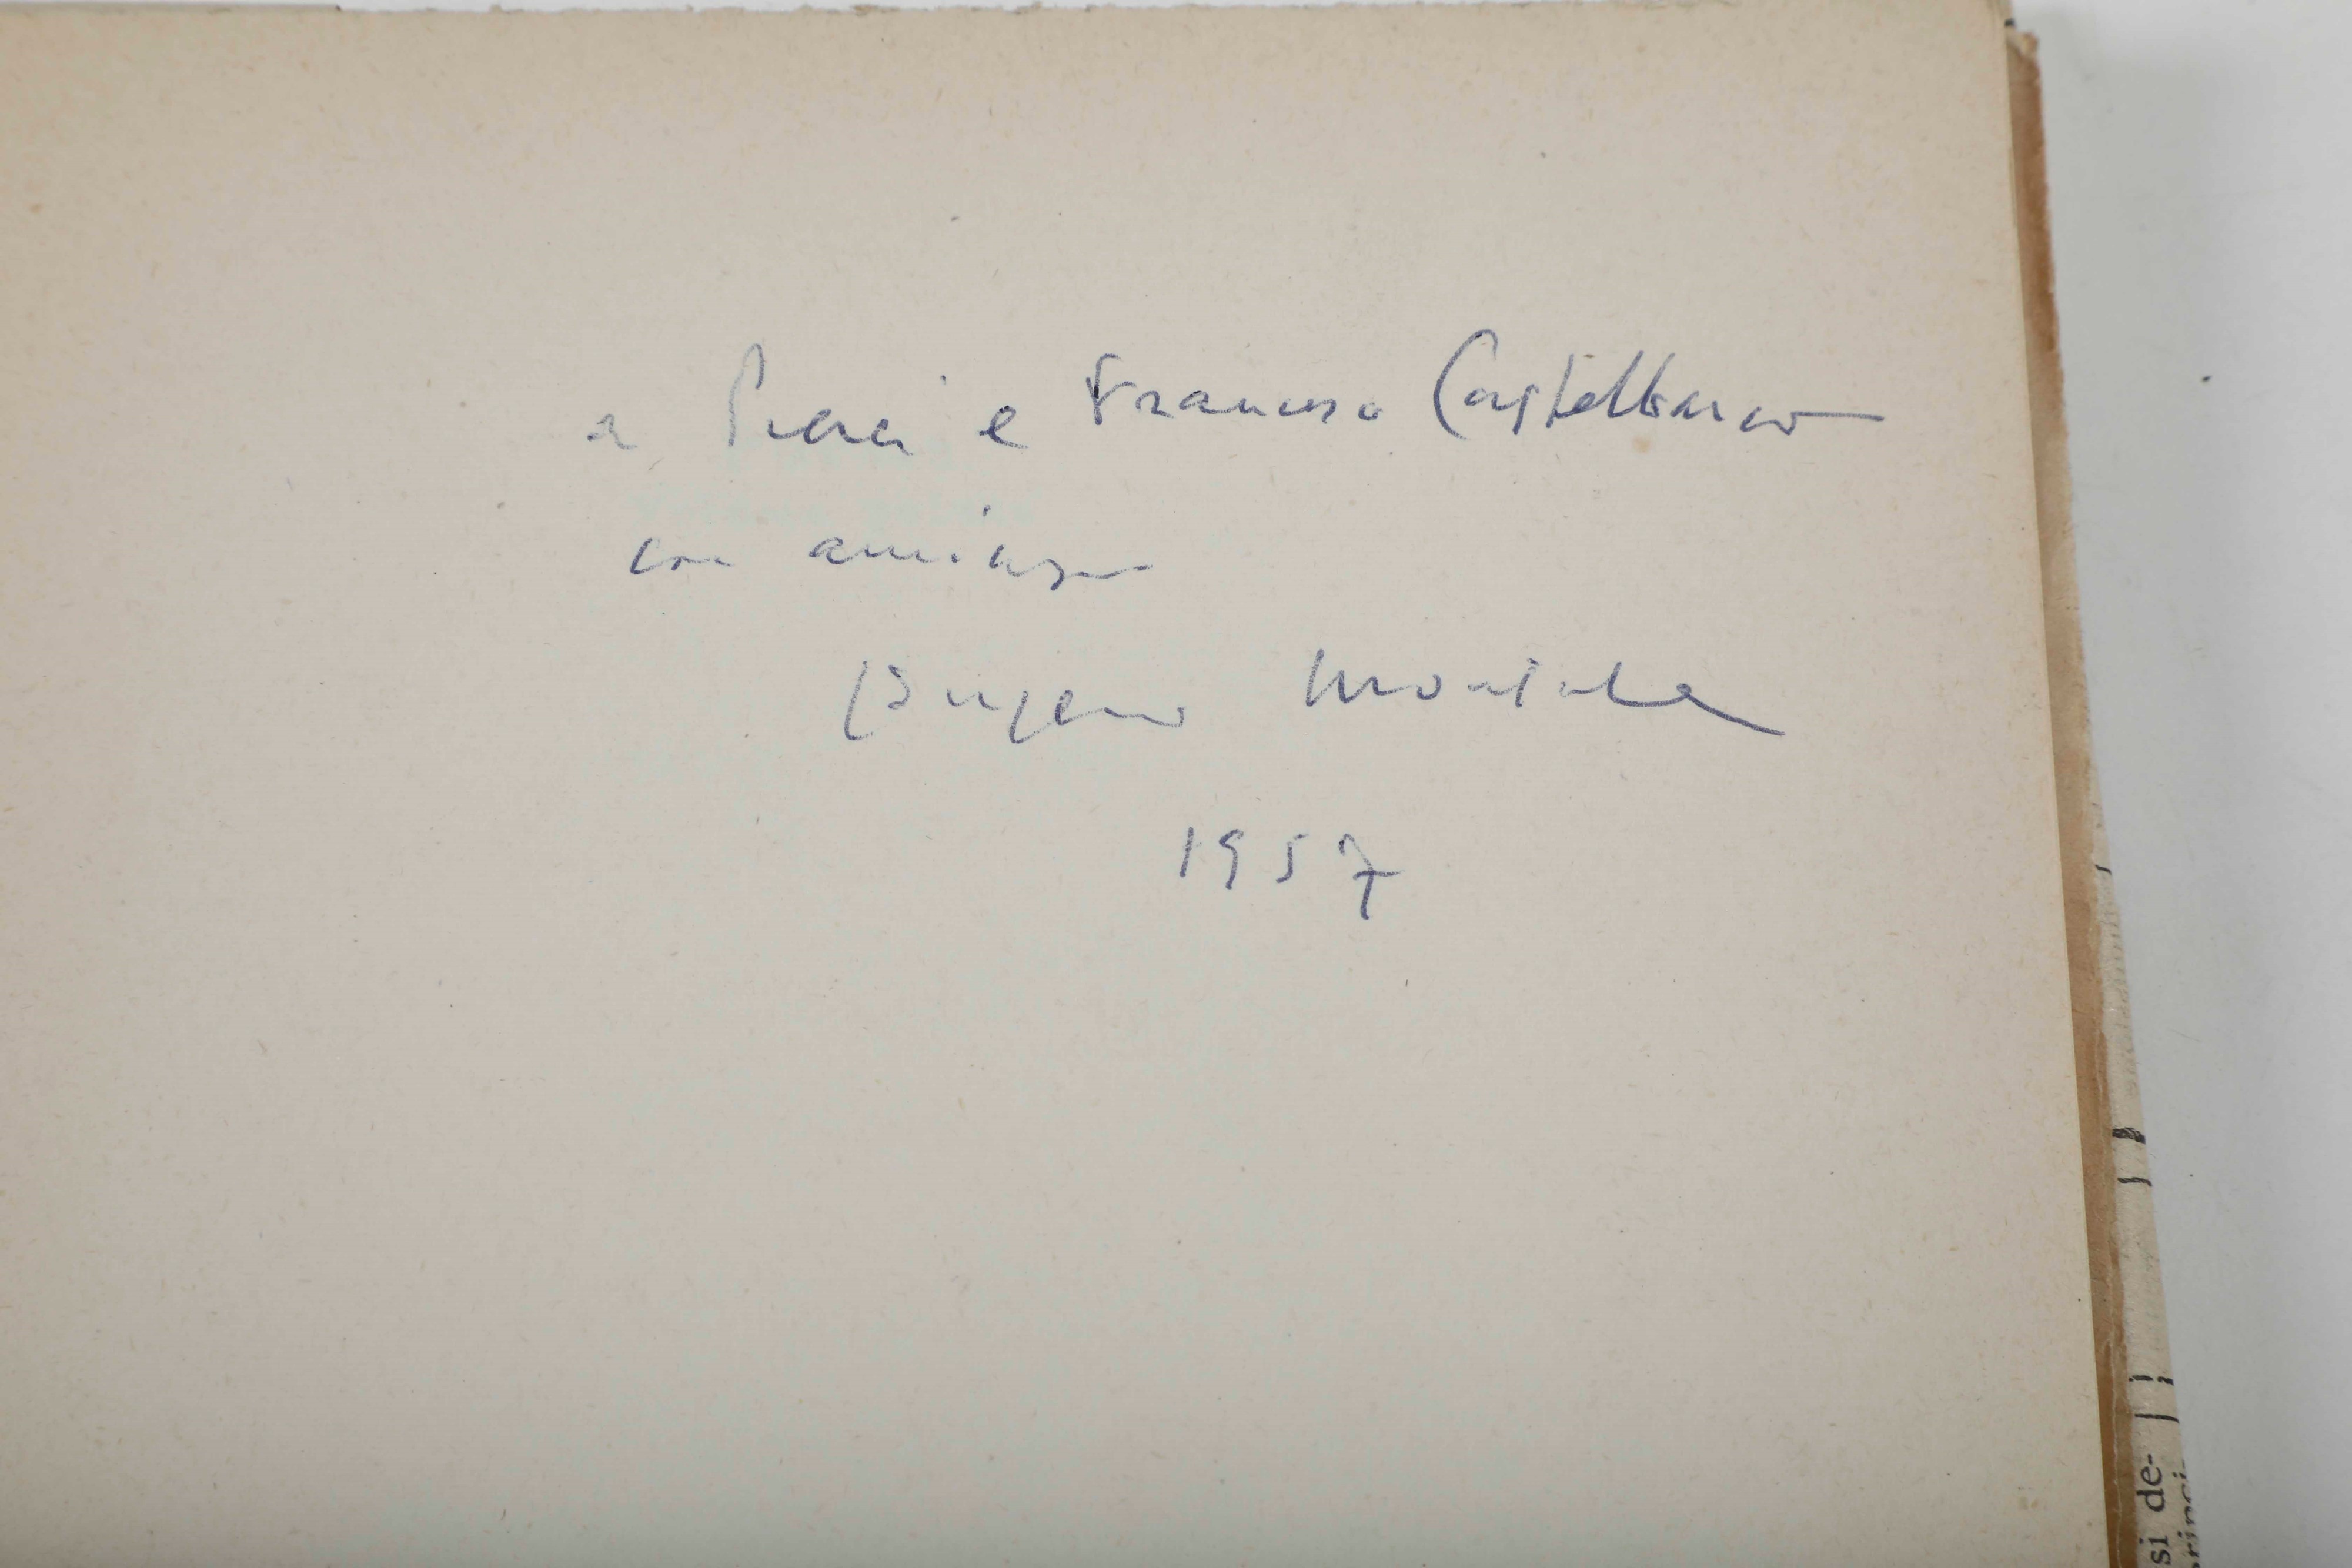 a Piera e Francesco Castelbarco
con amicizia
Eugenio Montale
1957
si de-
princi-